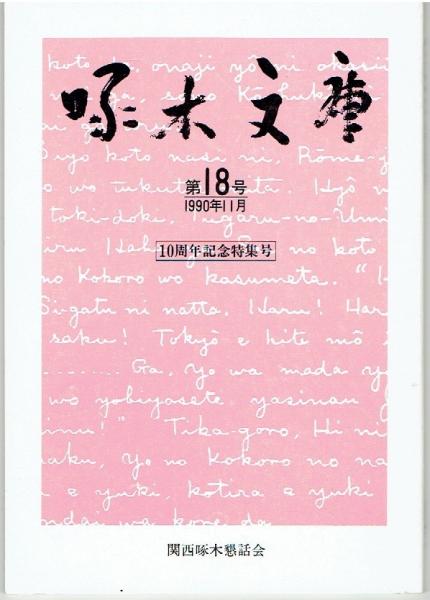 koto to, onaji yô ni okasii
啄木文庫
koto nasi ni, Rôme-j
第18号
wo tukut ita. Hyô n
1990年11月
toki-doki, Tugaru-no-Um
iru Hah no koto
10周年記念特集号
no Kokoro wo kasumeta. "H
Si-gatu ni natta. Haru! Har
saku! Tokyô e kite mô i
......... Ga, yo wa mada y
wo yobiyasete yasinau
inu!" Tika-goro, Hi ni
aku, Yo no Kokoro no na
e yuki, kotira e yuki
ndau wa kore da
関西啄木懇話会